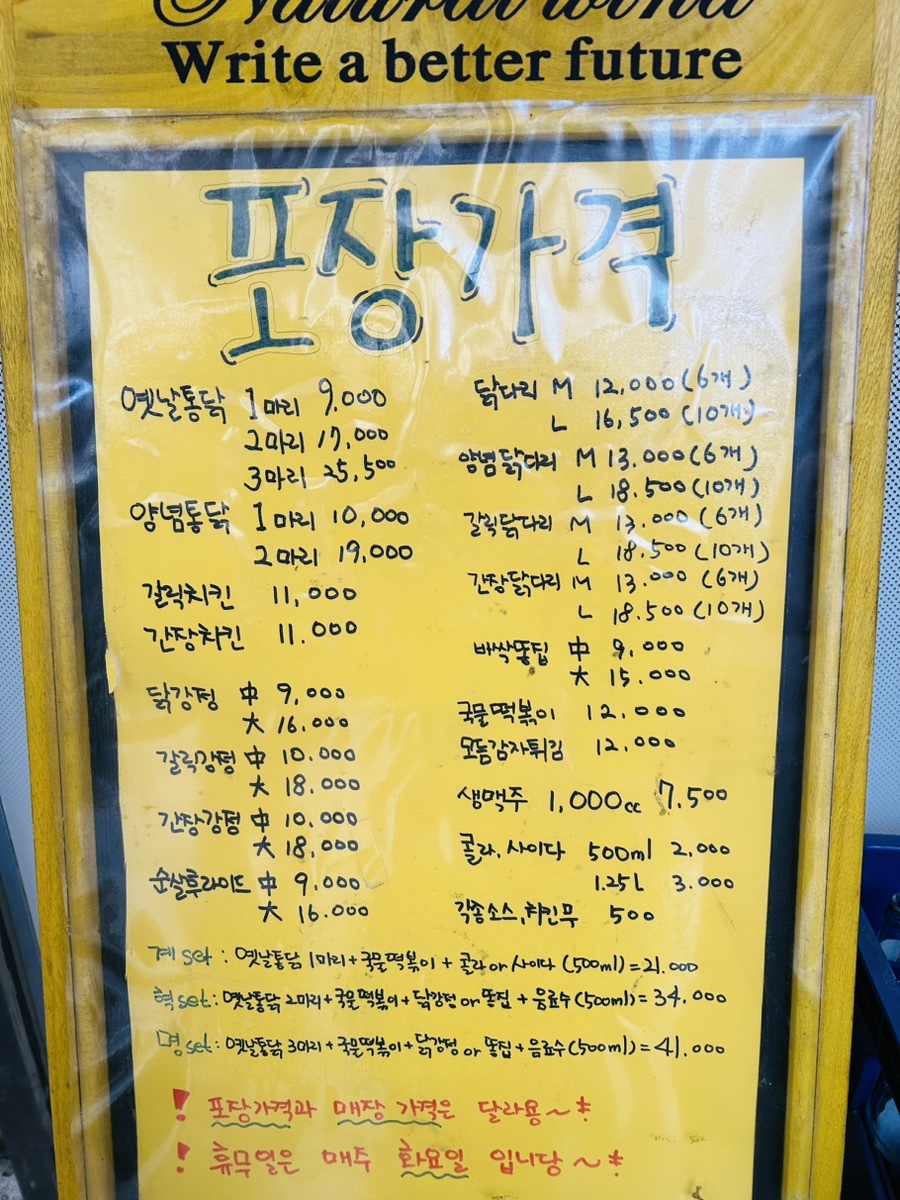 Natural wind
Write a better future
포장가격
옛날통닭 1마리 9,000
2마리 17,000
3마리 25,500
양념통닭 1마리 10,000
2마리 19,000
갈릭치킨 11,000
간장치킨 11.000
닭강정 中 9,000
大 16.000
갈릭강정 中 10.000
大 18.000
간장강정 中 10.000
大 18,000
순살후라이드 中 9.000
大 16.000
닭다리 M 12,000(6개)
L 16,500(10개)
양념닭다리 M 13.000(6개)
L 18.500(10개)
갈릭닭다리 M 13.000(6개)
L 18.500(10개)
간장닭다리 M 13.000(6개)
L 18.500(10개)
바싹똥집 中 9,000
大 15.000
국물떡볶이 12.000
모듬감자튀김 12.000
생맥주 1,000cc 7.500
콜라, 사이다 500ml 2.000
1.25L 3.000
각종소스, 치킨무 500
계set : 옛날통닭 1마리+국물떡볶이+콜라or사이다(500ml)=21.000
혁set: 옛날통닭 2마리+국물떡볶이+닭강정or똥집+음료수(500ml)=34.000
명set: 옛날통닭 3마리+국물떡볶이+닭강정or똥집+음료수(500ml)=41.000
! 포장가격과 매장가격은 달라용~
! 휴무일은 매주 화요일 입니당~